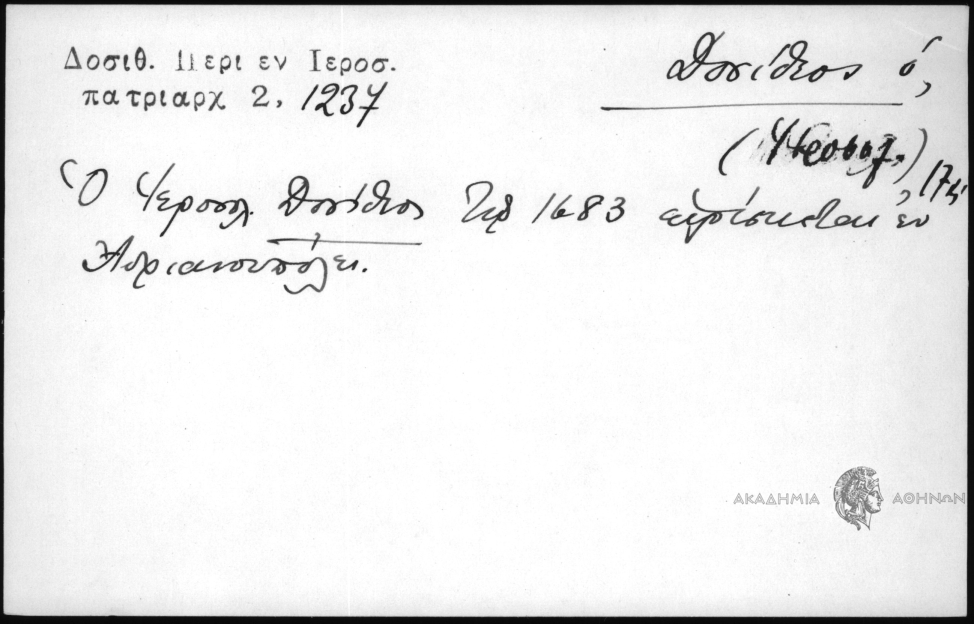 Δοσιθ. Περι εν Ιεροσ.
πατριαρχ 2, 1237
Δοσίθεος ὁ,
(Ἱεροσολ.), 17ς΄
Ὁ Ἱεροσολ. Δοσίθεος τῷ 1683 εὑρίσκεται ἐν
Ἀδριανουπόλει.
ΑΚΑΔΗΜΙΑ ΑΘΗΝΩΝ